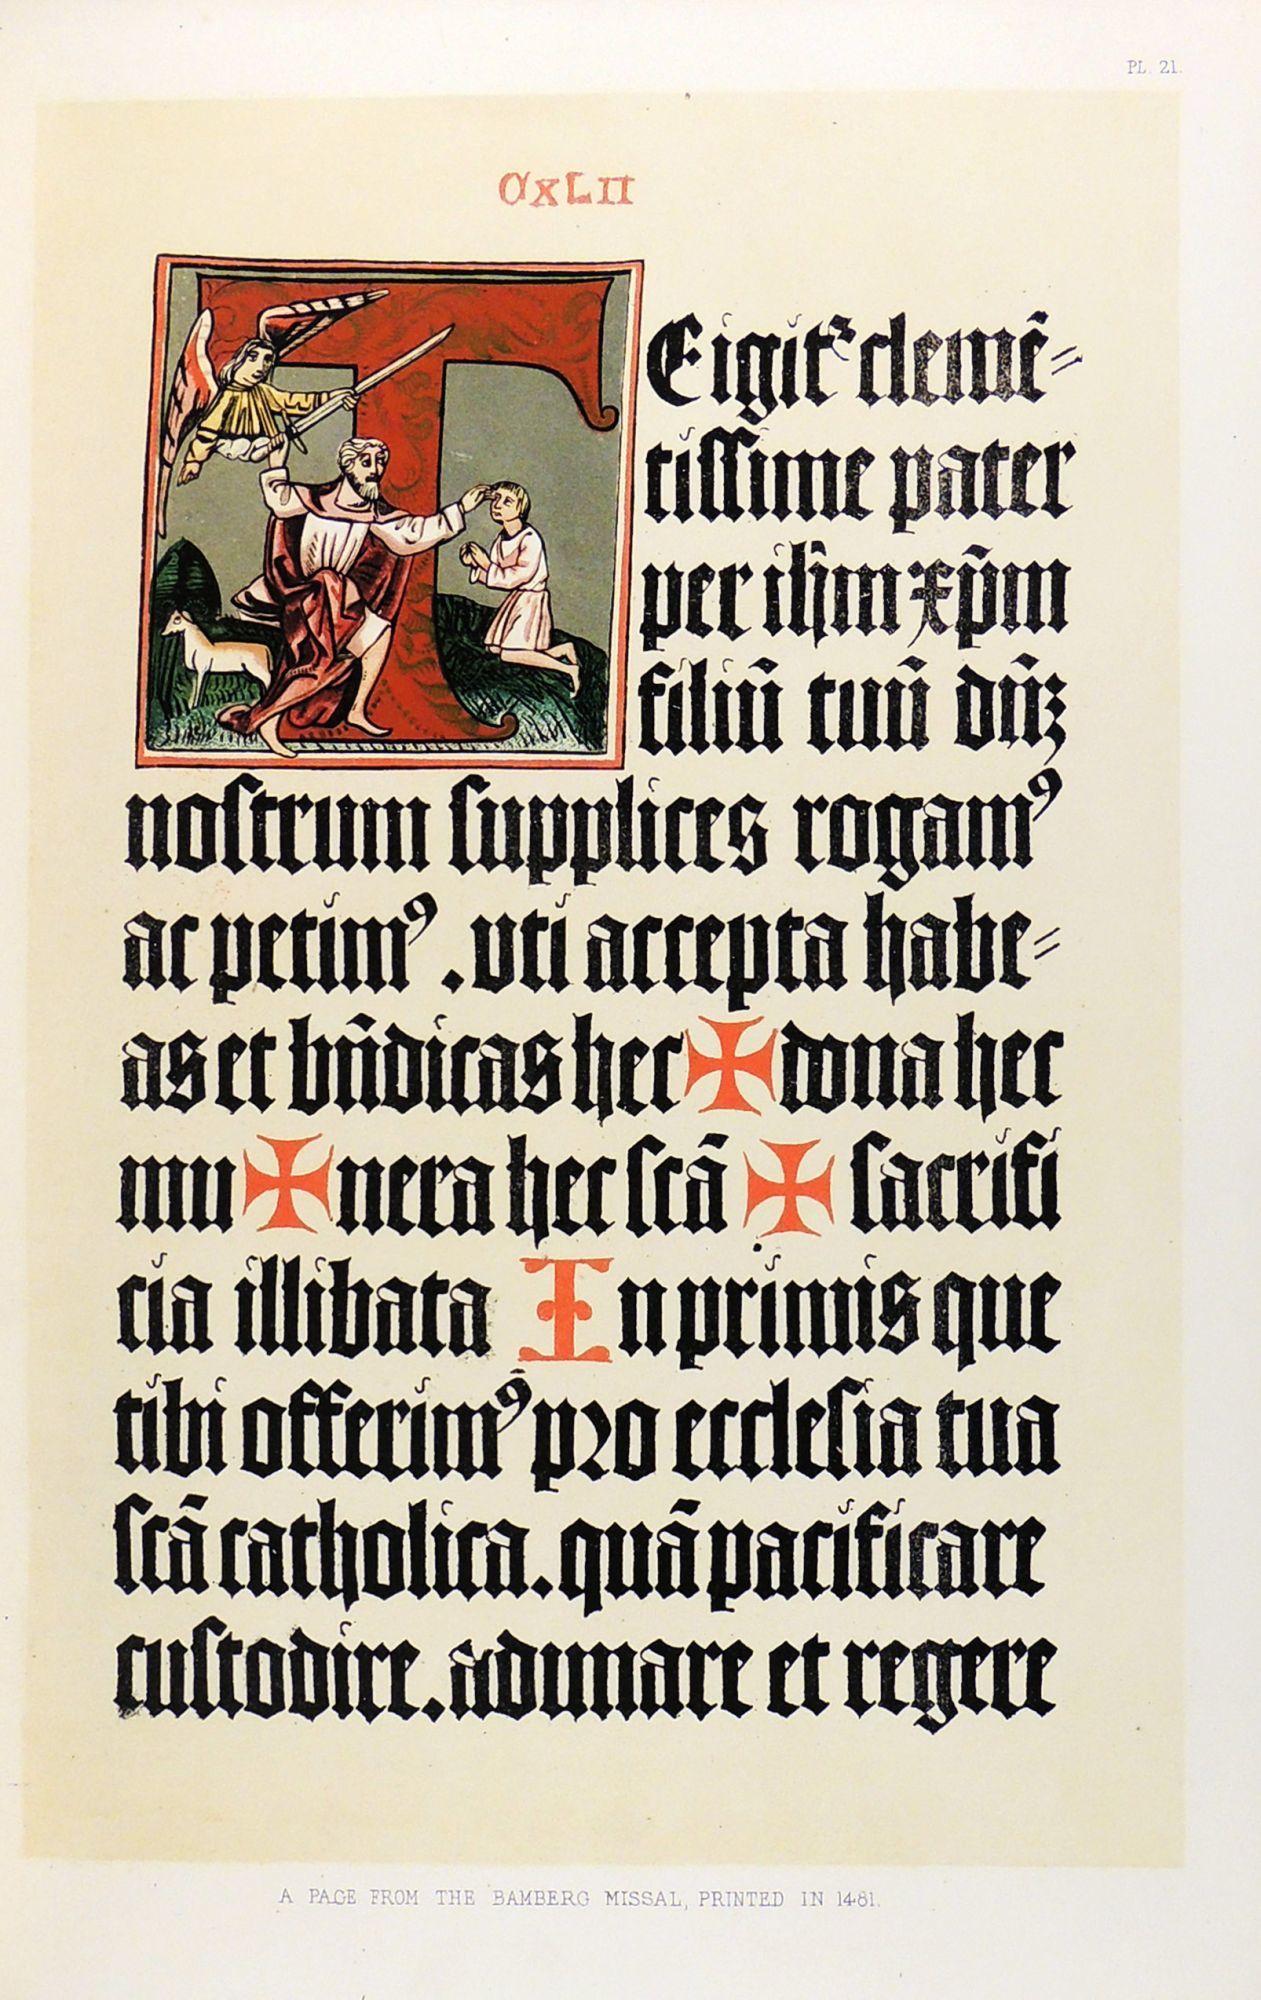 PL. 21.
CXLII
TEigitᷣ clemē=
tissime pater
per ihm̄ xp̄m
filiū tuū dn̄ꝫ
nostrum supplices rogamꝰ
ac petimꝰ . vti accepta habe=
as et bn̄dicas hec ✠ dona hec
mu ✠ nera hec scā ✠ sacrifi
cia illibata In primis que
tibi offerimꝰ pro ecclesia tua
scā catholica. quā pacificare
custodire. adunare et regere
A PAGE FROM THE BAMBERG MISSAL, PRINTED IN 1481.